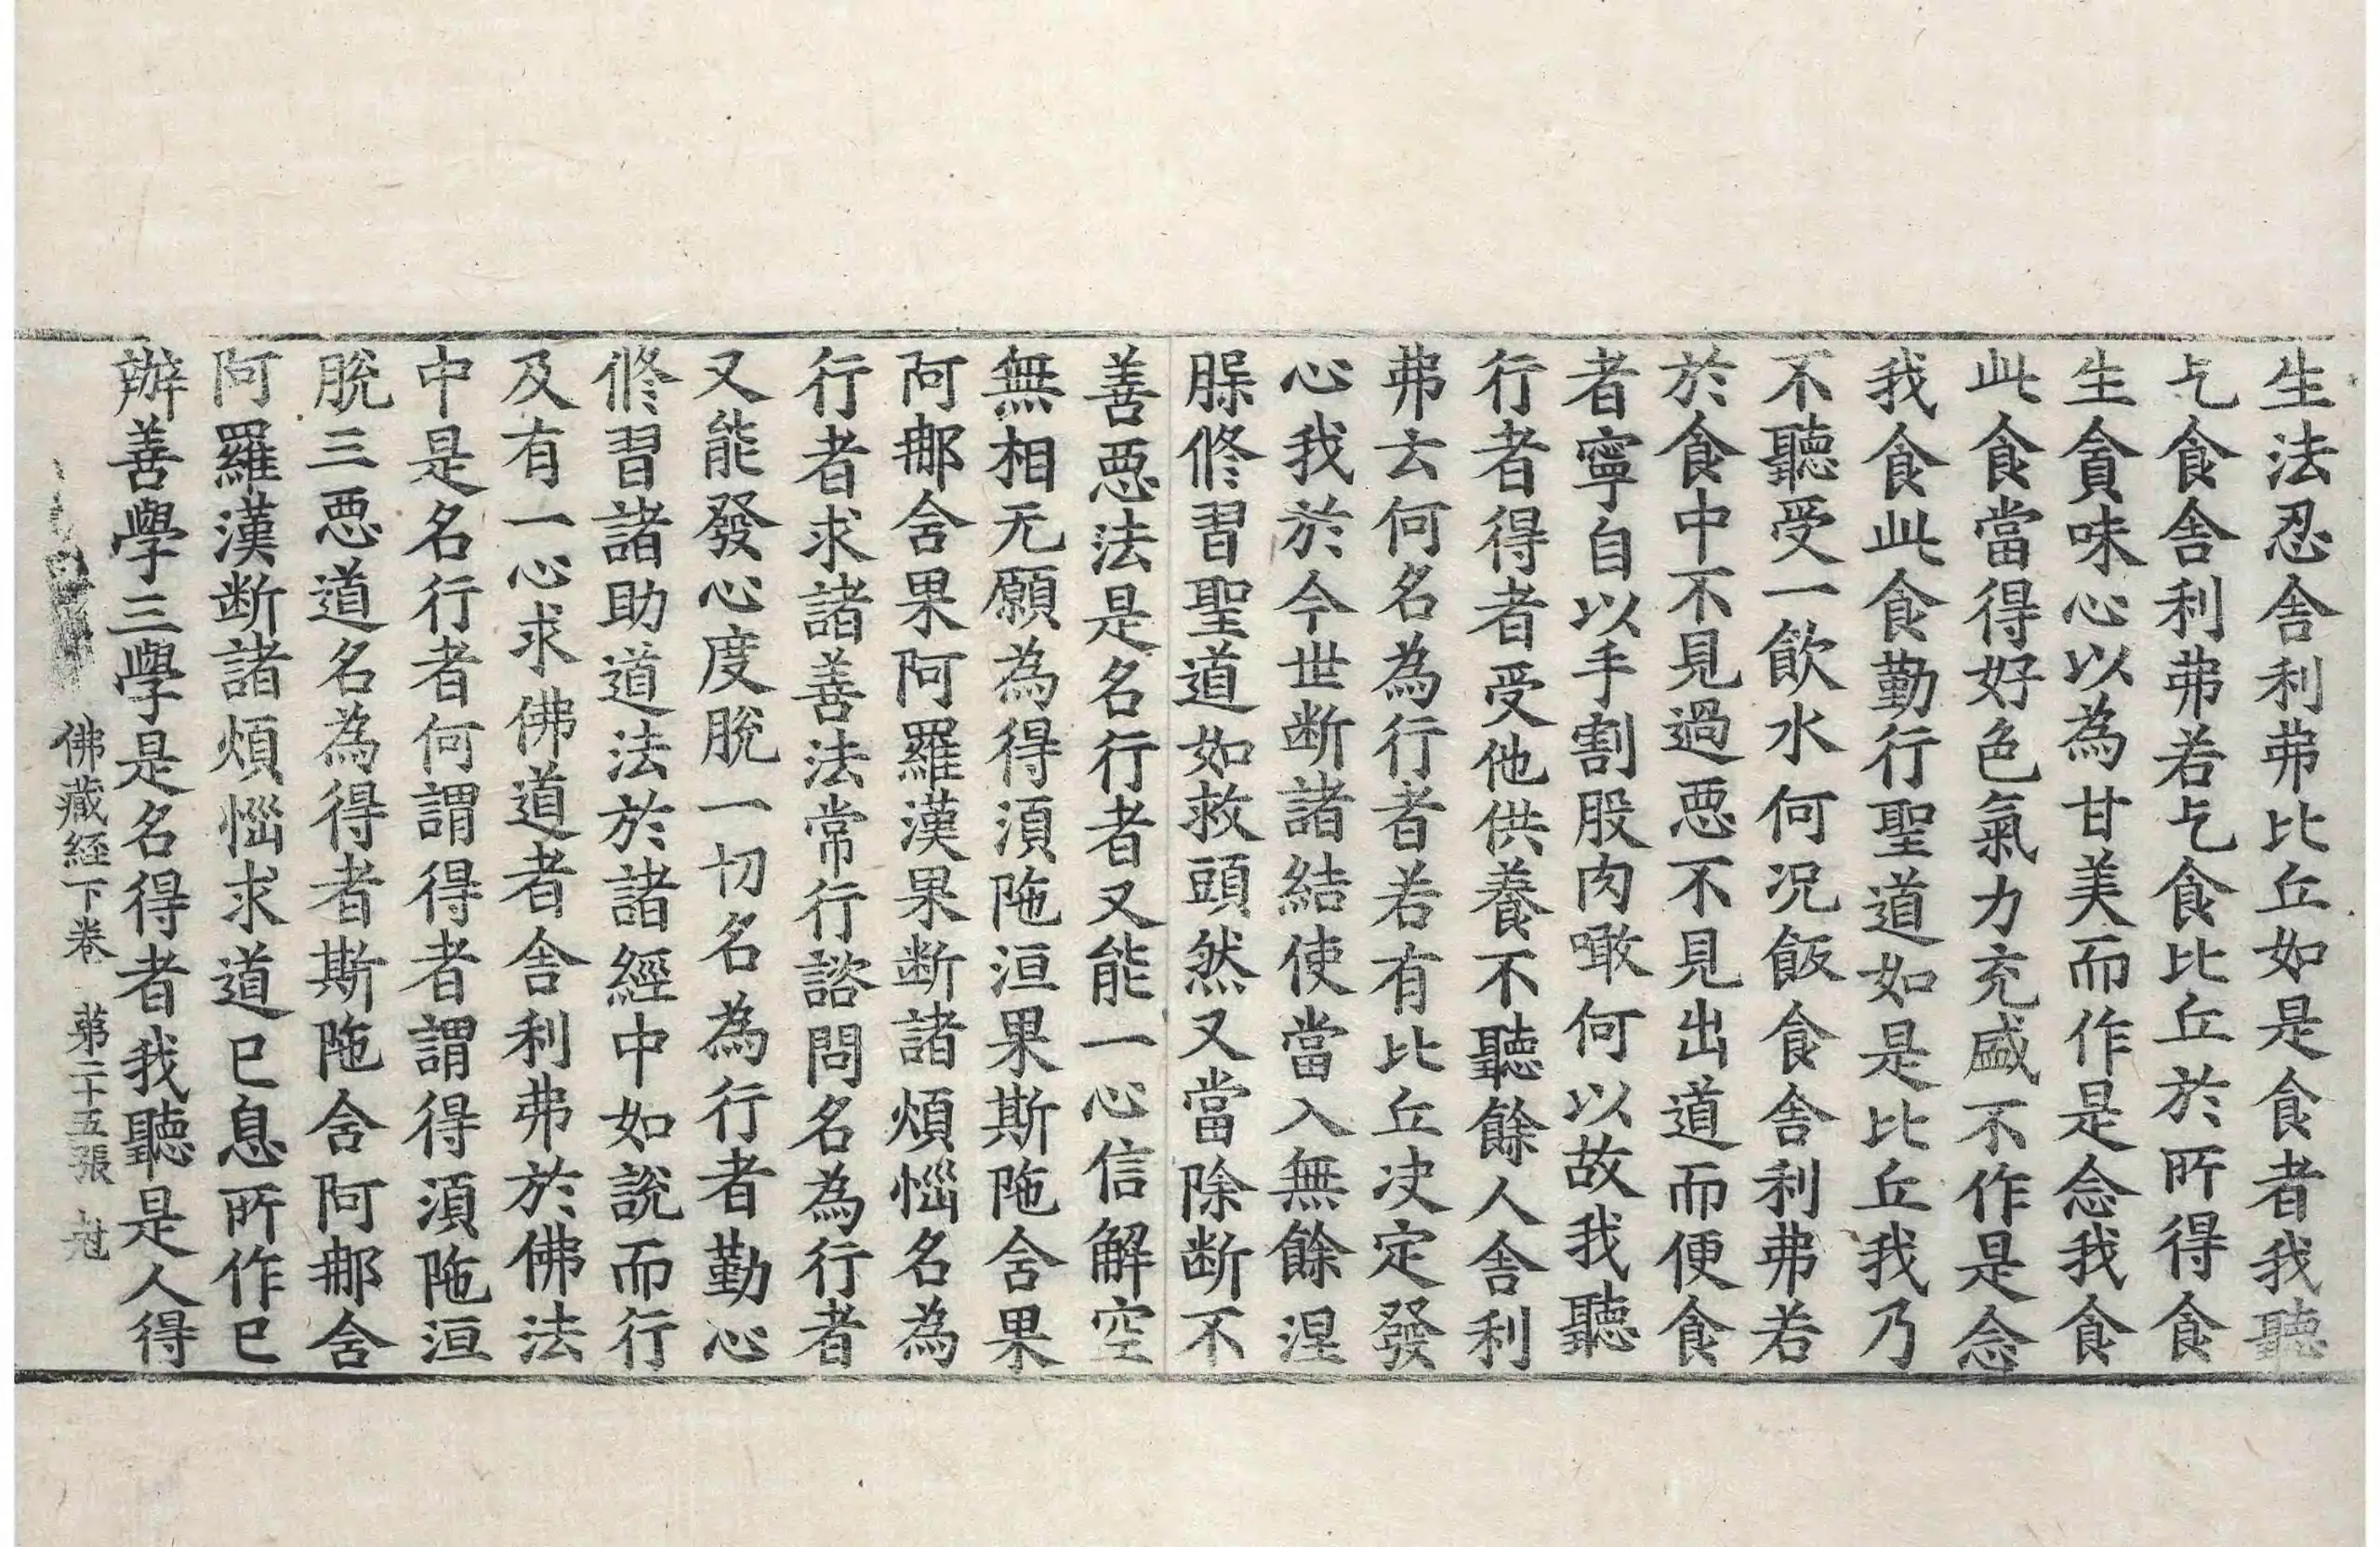 生法忍舍利弗比丘如是食者我聽
乞食舍利弗若乞食比丘於所得食
生貪味心以為甘美而作是念我食
此食當得好色氣力充盛不作是念
我食此食勤行聖道如是比丘我乃
不聽受一飲水何況飯食舍利弗若
於食中不見過惡不見出道而便食
者寧自以手割股肉噉何以故我聽
行者得者受他供養不聽餘人舍利
弗云何名為行者若有比丘决定發
心我於今世断諸結使當入無餘涅
脲修習聖道如救頭然又當除断不
善惡法是名行者又能一心信解空
無相无願為得湏陁洹果斯陁舍果
阿那舍果阿羅漢果断諸煩惱名為
行者求諸善法常行諮問名為行者
又能發心度脫一切名為行者勤心
修習諸助道法於諸經中如說而行
及有一心求佛道者舍利弗於佛法
中是名行者何謂得者謂得湏陁洹
脫三惡道名為得者斯陁舍阿那舍
阿羅漢断諸煩惱求道已息所作已
辦善學三學是名得者我聽是人得
佛藏経下卷 苐二十五張